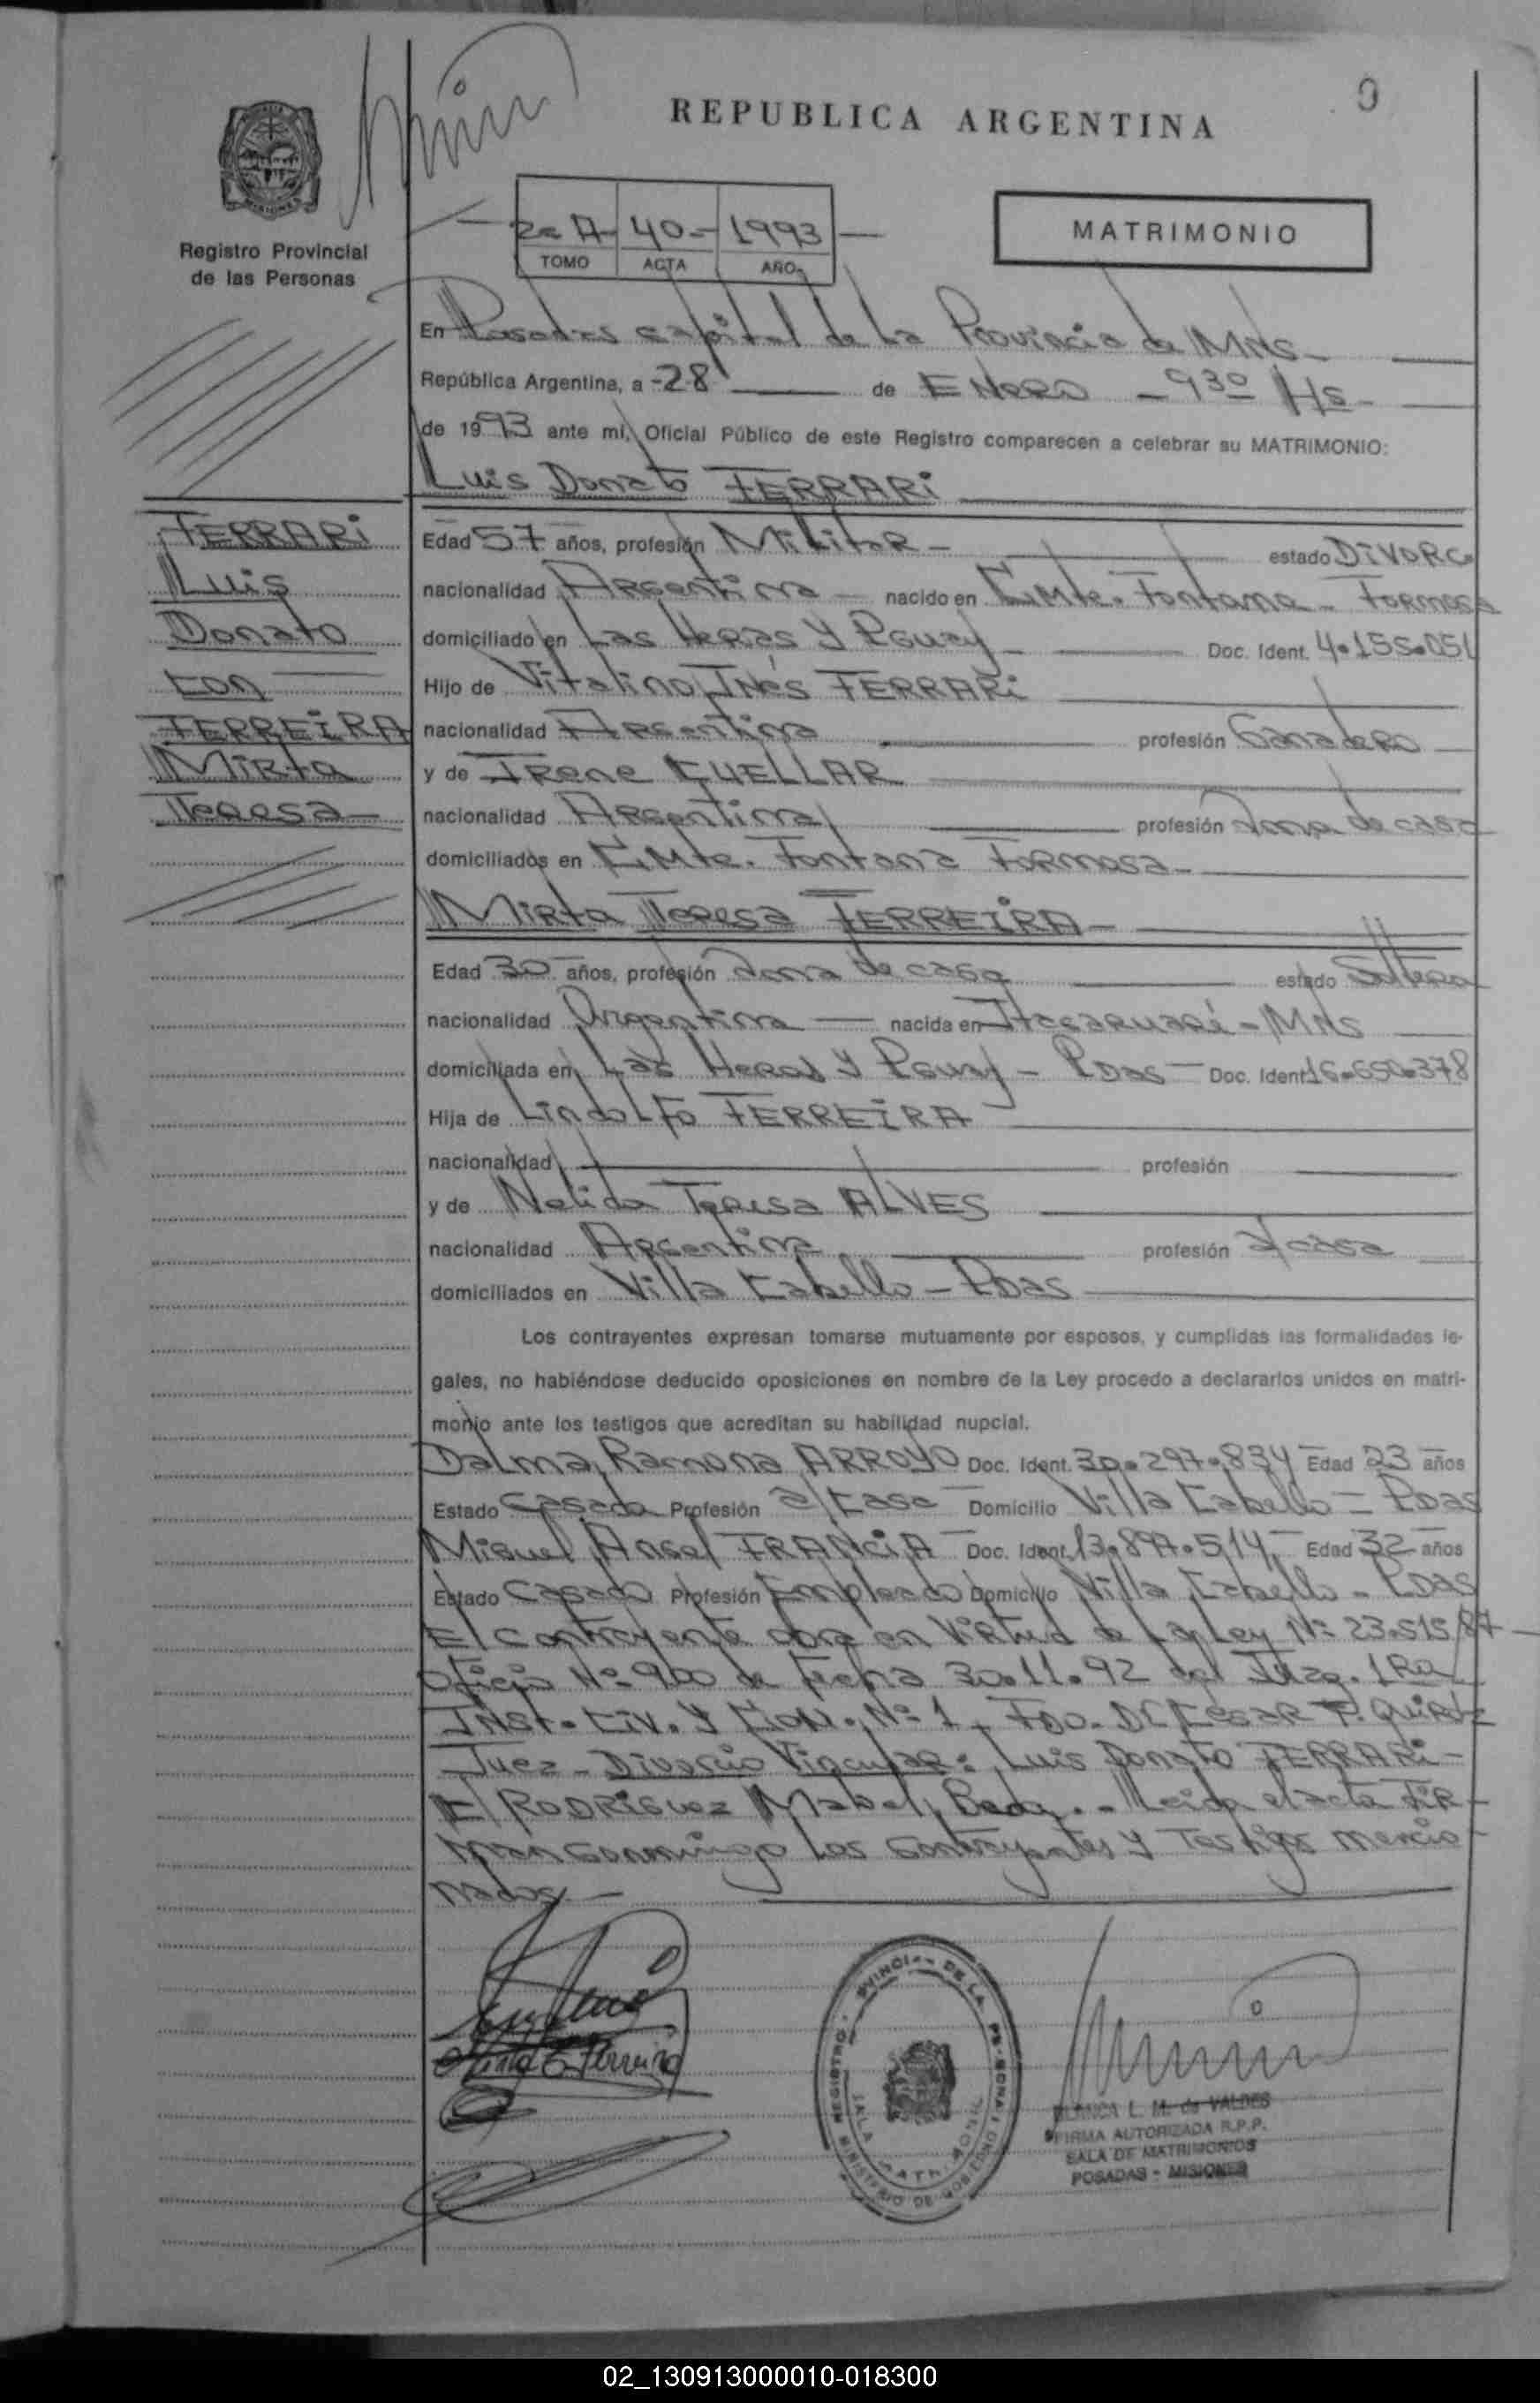 REPUBLICA ARGENTINA
MISIONES
Registro Provincial
de las Personas
40- 1993
TOMO ACTA AÑO
MATRIMONIO
En Posadas capital de La Provincia de MNS-
República Argentina, a -28 de ENERO - 9³⁰ Hs-
de 1993 ante mí, Oficial Público de este Registro comparecen a celebrar su MATRIMONIO:
Luis Donato FERRARI
FERRARI
Luis
Donato
con
FERREIRA
Mirta
Teresa
Edad 57 años, profesión Militar- estado Divorc.
nacionalidad Argentina - nacido en Cmte. Fontana - Formosa
domiciliado en Las Heras y Pouey - Doc. Ident. 4.155.051
Hijo de Vitalino Inés FERRARI
nacionalidad Argentina profesión Ganadero
y de Irene CUELLAR
nacionalidad Argentina profesión ama de casa
domiciliados en Cmte. Fontana Formosa-
Mirta Teresa FERREIRA-
Edad 30 años, profesión ama de casa estado Soltera
nacionalidad Argentina - nacida en Itacaruaré - MNS
domiciliada en Las Heras y Pouey - Pdas - Doc. Ident. 16.650.378
Hija de Lindolfo FERREIRA
nacionalidad profesión
y de Nelida Teresa ALVES
nacionalidad Argentina profesión a/casa
domiciliados en Villa Cabello - Pdas
Los contrayentes expresan tomarse mutuamente por esposos, y cumplidas las formalidades le-
gales, no habiéndose deducido oposiciones en nombre de la Ley procedo a declararlos unidos en matri-
monio ante los testigos que acreditan su habilidad nupcial.
Dalma Ramona ARROYO Doc. Ident. 30.297.834 Edad 23 años
Estado Casada Profesión a/casa Domicilio Villa Cabello - Pdas
Miguel Angel FRANCIA Doc. Ident. 13.897.514 Edad 32 años
Estado Casado Profesión Empleado Domicilio Villa Cabello - Pdas
El contrayente obra en virtud de la Ley Nº 23.515/87
oficio Nº 900 de fecha 30.11.92 del Juzg. 1Ra
Inst. Civ. y Com. Nº 1, Fdo. Dr Cesar
Juez - Divorcio Vincular: Luis Donato FERRARI -
C/ RODRIGUEZ Mabel Leida el acta fir-
man conmigo Los contrayentes y Testigos mencio-
nados -
Mirta T. Ferreira
BLANCA L. M. de VALDES
FIRMA AUTORIZADA R.P.P.
SALA DE MATRIMONIOS
POSADAS - MISIONES
02_130913000010-018300